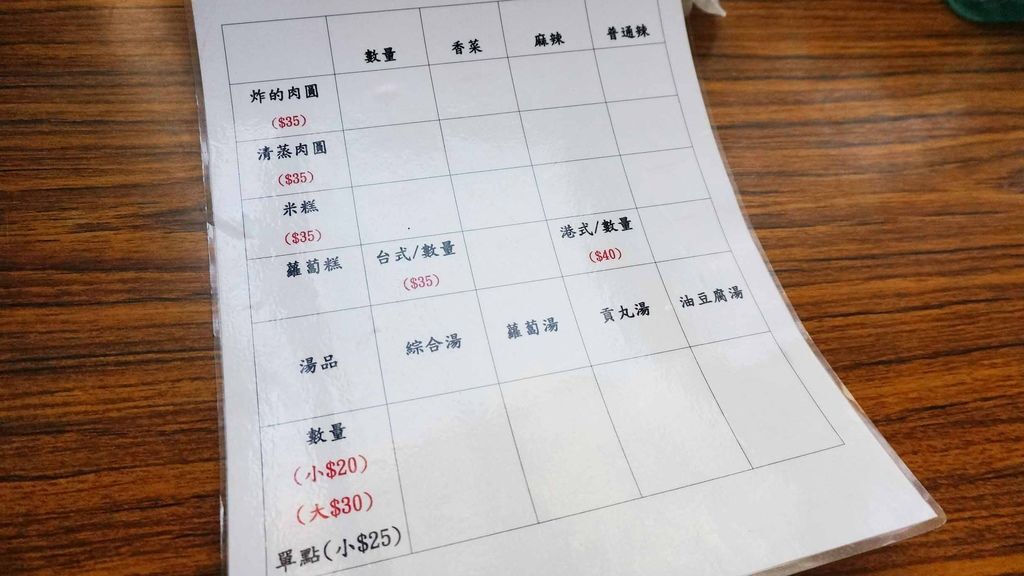 數量 香菜 麻辣 普通辣
炸的肉圓
($35)
清蒸肉圓
($35)
米糕
($35)
蘿蔔糕 台式/數量 港式/數量
($35) ($40)
湯品 綜合湯 蘿蔔湯 貢丸湯 油豆腐湯
數量
(小$20)
(大$30)
單點(小$25)